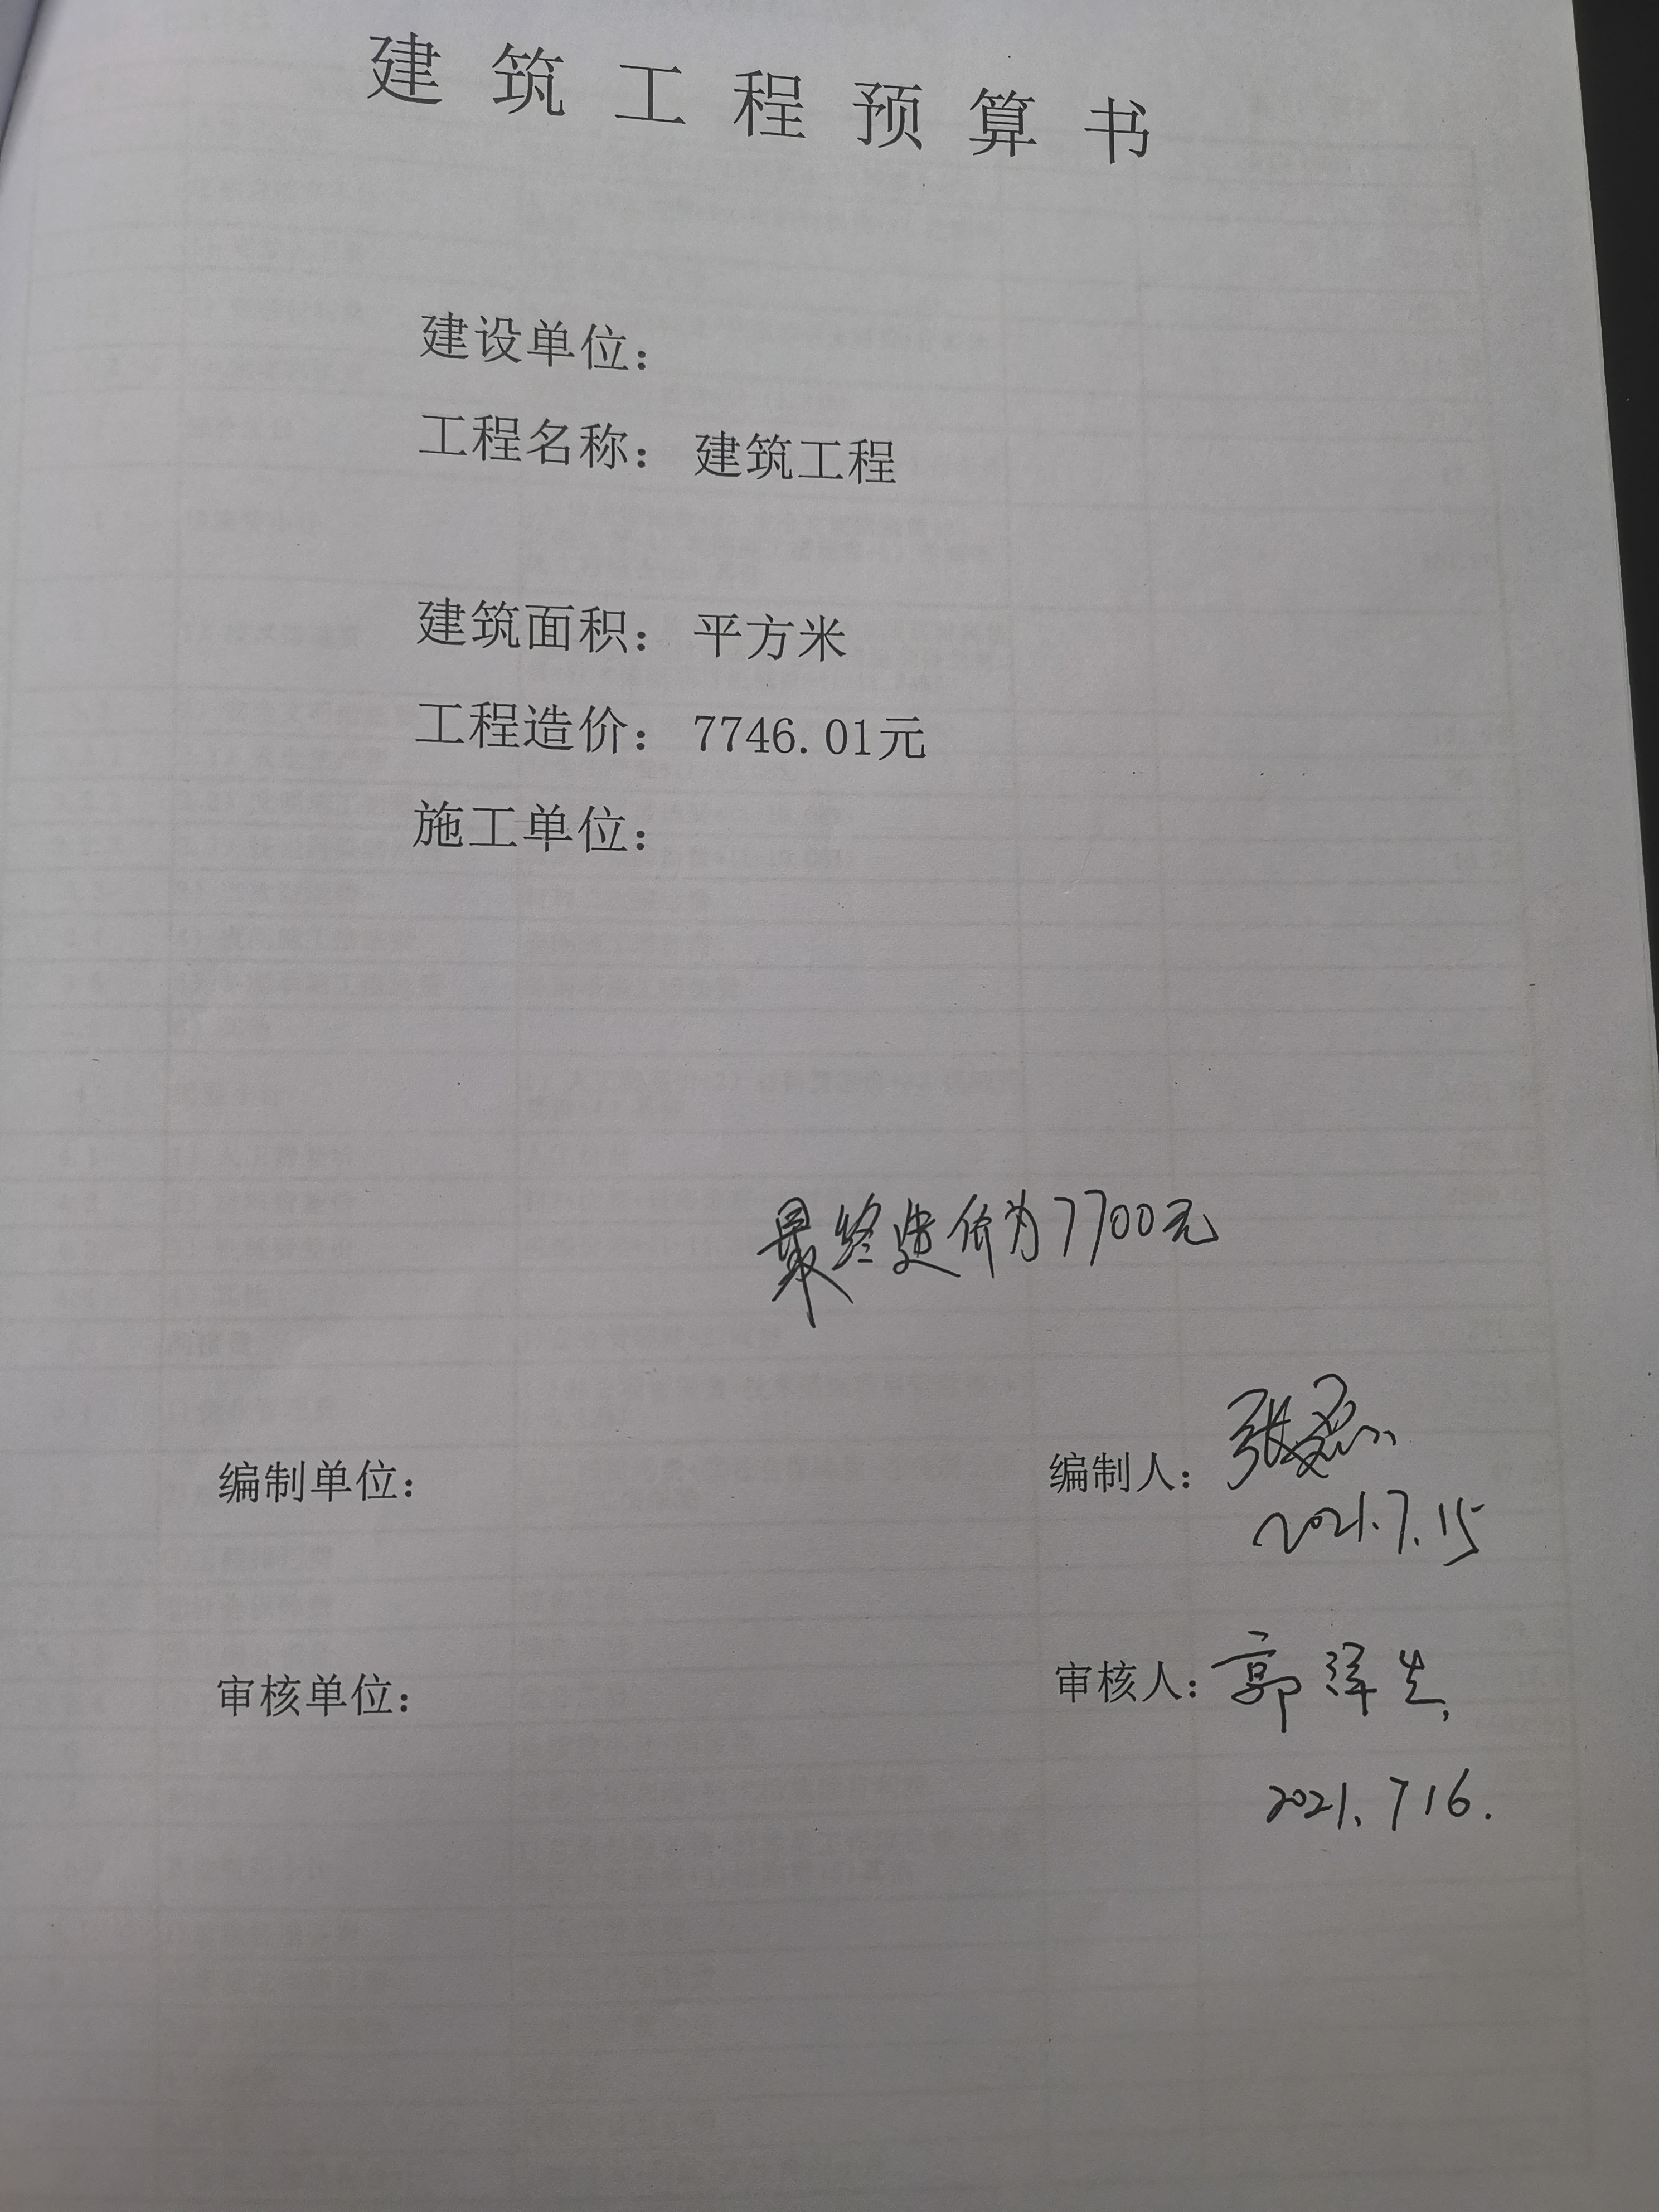 建筑工程预算书
建设单位：
工程名称： 建筑工程
建筑面积： 平方米
工程造价： 7746.01元
施工单位：
最终造价为7700元
编制单位：
编制人： 张磊
2021.7.15
审核单位：
审核人： 郭泽生
2021.7 16.